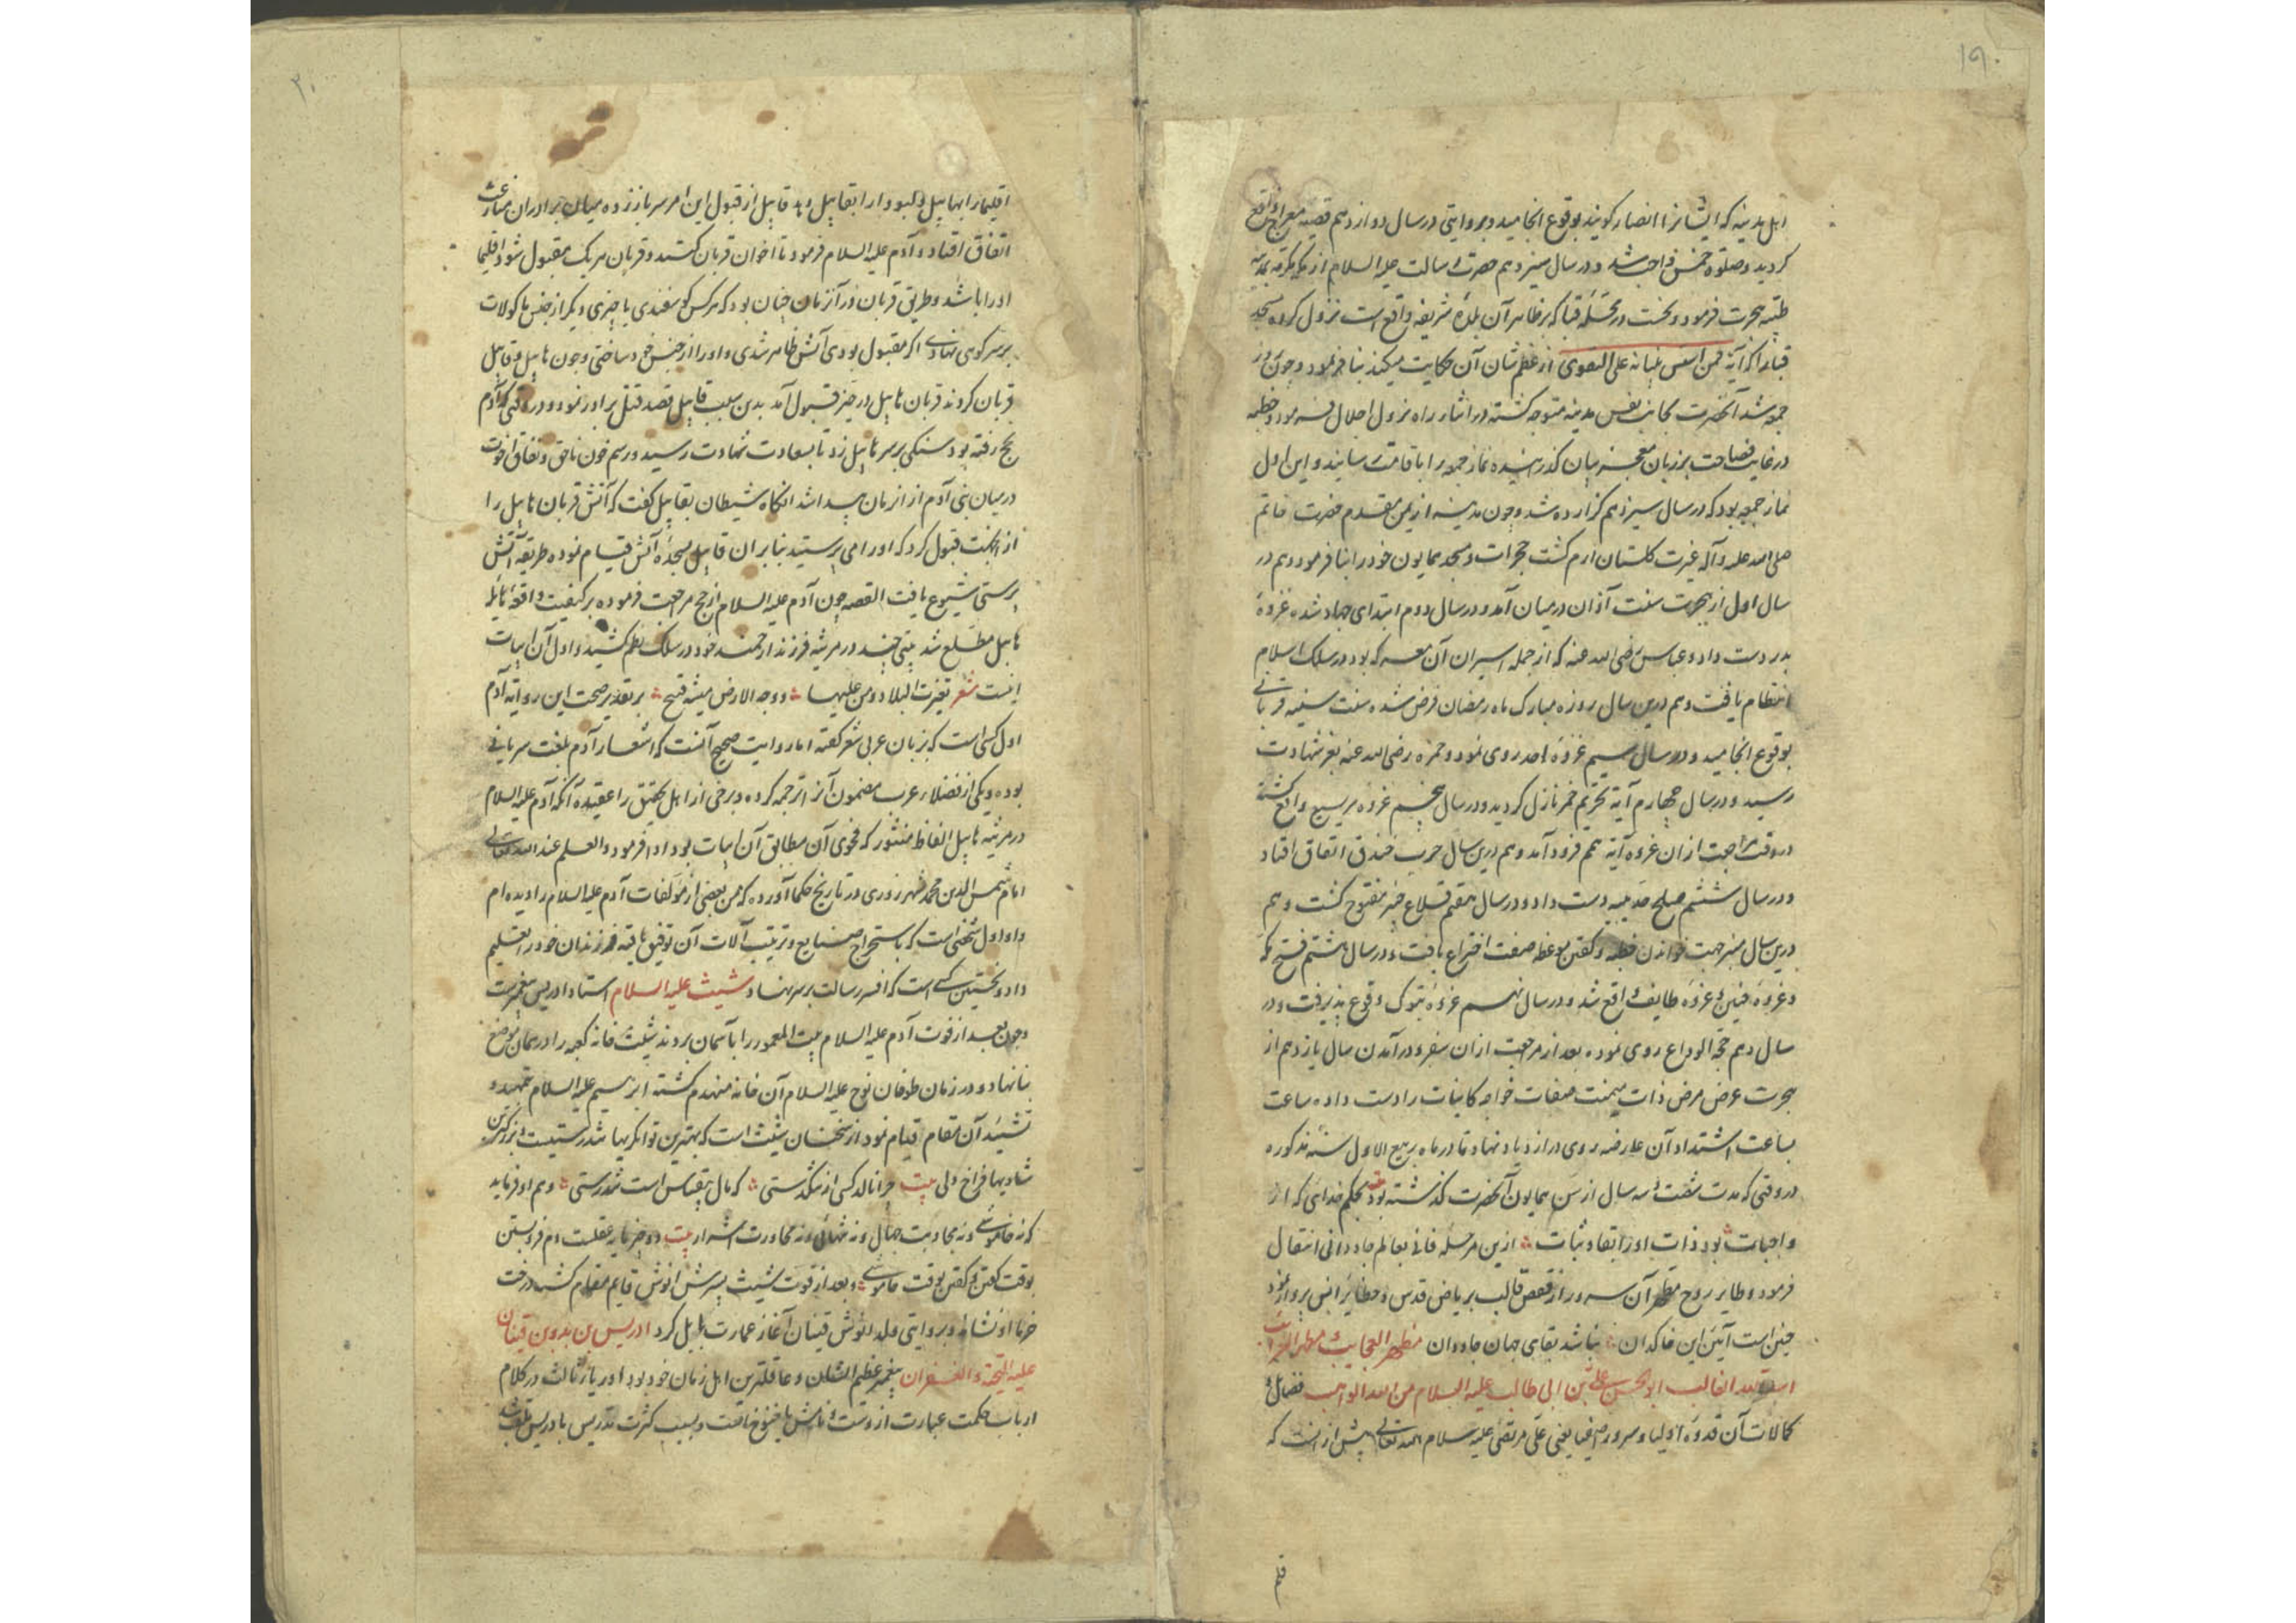 ۱۹۰
اهل مدینه که ایشانرا انصار کویند بوقوع انجامید و بروایتی در سال دوازدهم قصیه معراج واقع
کردید و صلوة خمس واجب شد و در سال سیزدهم حضرت رسالت علیه السلام از مکه مکرمه بمدینه
طیبه هجرت فرمود و نخست در محله قبا که بر ظاهر آن بلده شریفه واقع است نزول کرده مسجد
قبا را که آیه فمن اسس بنیانه علی التقوی از عظم شان آن حکایت میکند بنا فرمود و چون روز
جمعه شد آنحضرت بجانب نفس مدینه متوجه کشته در اثناء راه نزول اجلال فرمود و خطبه
در غایت فصاحت بر زبان معجز بیان کذرانیده نماز جمعه را باقامت رسانیدند و این اول
نماز جمعه بود که در سال سیزدهم کزارده شد و چون مدینه از یمن مقدم حضرت خاتم
صلی الله علیه و آله غیرت کلستان ارم کشت حجرات و مسجد همایون خود را بنا فرمود و هم در
سال اول از هجرت سنت آذان در میان آمد و در سال دوم ابتدای جهاد شده غزوهٔ
بدر دست داد و عباس رضی الله عنه که از جمله اسیران آن معرکه بود در سلک اسلام
انتظام یافت و هم درین سال روزه مبارک ماه رمضان فرض شده سنت سنیه قربانی
بوقوع انجامید و در سال سیم غزوه احد روی نمود و حمزه رضی الله عنه بعز شهادت
رسید و در سال چهارم آیه تحریم خمر نازل کردید و در سال پنجم غزوه مریسیع واقع کشته
در وقت مراجعت ازان غزوه آیه تیمم فرود آمد و هم درین سال حرب خندق اتفاق افتاد
و در سال ششم صلح حدیبیه دست داد و در سال هفتم قلاع خیبر مفتوح کشت و هم
درین سال منبر جهت خواندن خطبه و کفتن موعظه صفت اختراع یافت و در سال هشتم فتح مکه
و غزوه حنین و غزوه طایف واقع شد و در سال نهم غزوه تبوک وقوع پذیرفت و در
سال دهم حجة الوداع روی نموده بعد از مراجعت ازان سفر و در آمدن سال یازدهم از
هجرت عرض مرض ذات میمنت صفات خواجه کاینات را دست داده ساعت
بساعت اشتداد آن عارضه روی در ازدیاد نهاد تا در ماه ربیع الاول سنهٔ مذکوره
در وقتی که مدت شصت و سه سال از سن همایون آنحضرت کذشته بود بحکم خدائی که از
واجبات بود ذات اورا بقا و ثبات ازین مرحله فانی بعالم جاودانی انتقال
فرمود و طایر روح مطهر آن سرور از قفص قالب بریاض قدس و حظایر انس پرواز نمود
چنین است آئین این خاکدان نباشد بقای جهان جاودان مظهر العجایب مظهر الغرایب
اسد الله الغالب ابو الحسن علی بن ابی طالب علیه السلام من الله الواهب فضائل و
کمالات آن قدوه اولیا و سرور اصفیا یعنی علی مرتضی علیه سلام الله تعالی بیش ازانست که
قلم
۲۰
اقلیما را بهابیل و لبودا را بقابیل دهد قابیل از قبول این امر سر باز زده میان برادران منازعت
اتفاق افتاد و آدم علیه السلام فرمود تا اخوان قربان کنند و قربان هر یک مقبول شود اقلیما
او را باشد و طریق قربان در آنزمان چنان بود که هر کس کوسفندی یا چیزی دیکر از جنس ماکولات
بر سر کوهی نهادی اکر مقبول بودی آتش ظاهر شدی و اورا از جنس خود ساختی و چون هابیل و قابیل
قربان کردند قربان هابیل در حیز قبول آمد بدین سبب قابیل قصد قتل برادر نمود و در وقتی که آدم
بحج رفته بود سنکی بر سر هابیل زد تا بسعادت شهادت رسید و رسم خون ناحق و نفاق اخوت
در میان بنی آدم از انزمان پیدا شد انکاه شیطان بقابیل کفت که آتش قربان هابیل را
از انجهت قبول کرد که اورا می پرستید بنابران قابیل بسجده آتش قیام نموده طریقه آتش
پرستی شیوع یافت القصه چون آدم علیه السلام از حج مراجعت فرموده بر کیفیت واقعه هایله
هابیل مطلع شد بیتی چند در مرثیه فرزند ارجمند خود در سلک نظم کشید و اول آن ابیات
اینست شعر تغیرت البلاد و من علیها و وجه الارض مغبر قبیح بر تقدیر صحت این روایه آدم
اول کسی است که بزبان عربی شعر کفته اما روایت صحیح آنست که اشعار آدم بلغت سریانی
بوده و یکی از فضلاء عرب مضمون آنرا ترجمه کرده و برخی از اهل تحقیق را عقیده آنکه آدم علیه السلام
در مرثیه هابیل الفاظ منثور که فحوی آن مطابق آن ابیات بود ادا فرمود والعلم عند الله تعالی
امام شمس الدین محمد شهرزوری در تاریخ حکما آورده که من بعضی از مؤلفات آدم علیه السلام را دیده ام
و او اول شخصی است که باستخراج صنایع و ترتیب آلات آن توفیق یافته فرزندان خود را تعلیم
داد و نخستین کسی است که افسر رسالت بر سر نهاد شیث علیه السلام استاد ادریس پیغمبرست
و چون بعد از فوت آدم علیه السلام بیت المعمور را بآسمان بردند شیث خانه کعبه را در همان موضع
بنا نهاد و در زمان طوفان نوح علیه السلام آن خانه منهدم کشته ابراهیم علیه السلام بتمهید و
تشئید آن مقام قیام نمود از سخنان شیث است که بهترین توانکریها تندرستیست و بزرکترین
شادیها فراخ دلی بیت چرا نالد کسی از تنکدستی که مال بیقیاس است تندرستی و هم او فرماید
که نه خاموشی و نه مجاوبت جهال و نه تنهائی و نه مجاورت اشرار بیت دو چیز تیره عقلست دم فرو بستن
بوقت کفتن و کفتن بوقت خاموشی و بعد از فوت شیث پسرش انوش قایم مقام کشته درخت
خرما او نشاند و بروایتی ولد انوش قینان آغاز عمارت بابل کرد ادریس بن یرد بن قینان
علیه التحیة و الغفران پیغمبر عظیم الشان و عاقلترین اهل زمان خود بود اوریای ثالث در کلام
ارباب حکمت عبارت ازوست و نامش باخنوخ و بسبب کثرت تدریس بادریس